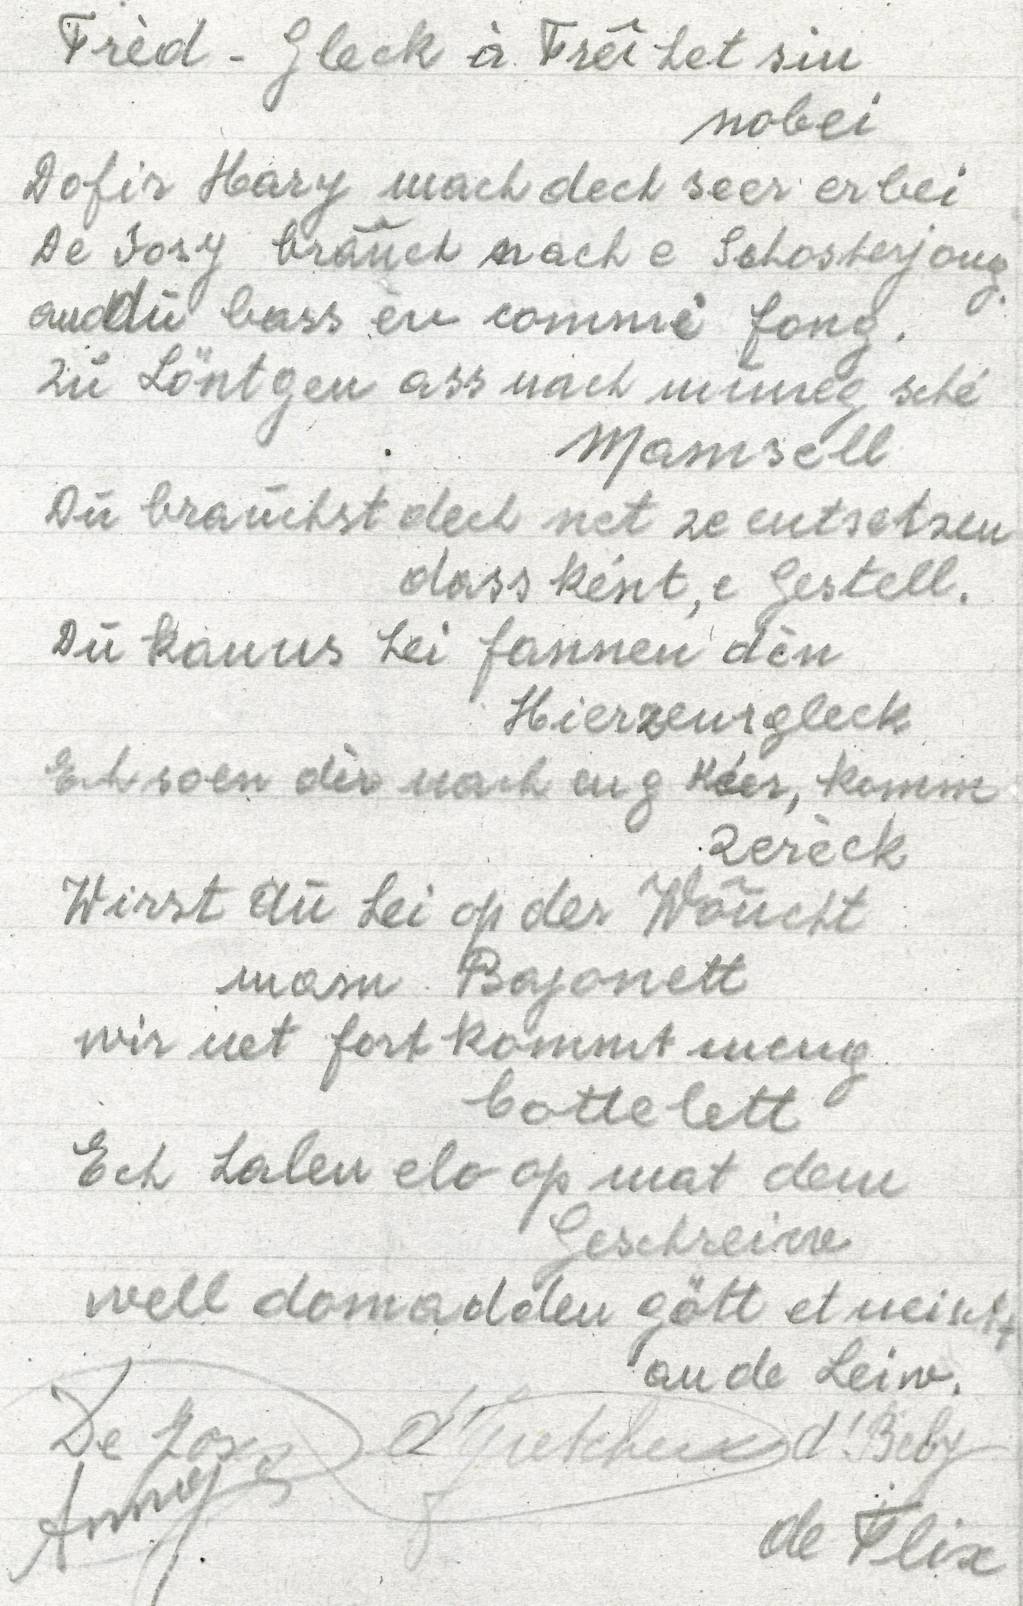 Frèd - Gleck à Frêihet sin
nobei
Dofir Hary mach dech seer erbei
De Josy bräuch nach e Schosterjong
and dū bass en commé fong.
Zū Löntgen ass nach mineg sché
Mamsell
Dū brauchst dech net ze entsetzen
dass ként, e Gestell.
Dū kanns hei fannen dèn
Hierzensgleck
Ech soen dir nach eng Kéer, komm
zerèck
Wirst dū hei op der Wöucht
mam Bajonett
wir net fort kommt meng
bottelett
Ech halen elo op mat dem
Geschreiw
well domadden gött et neischt
an de Leiw.
De Josy d'Gretchen d'Beby
Anny
de Flix